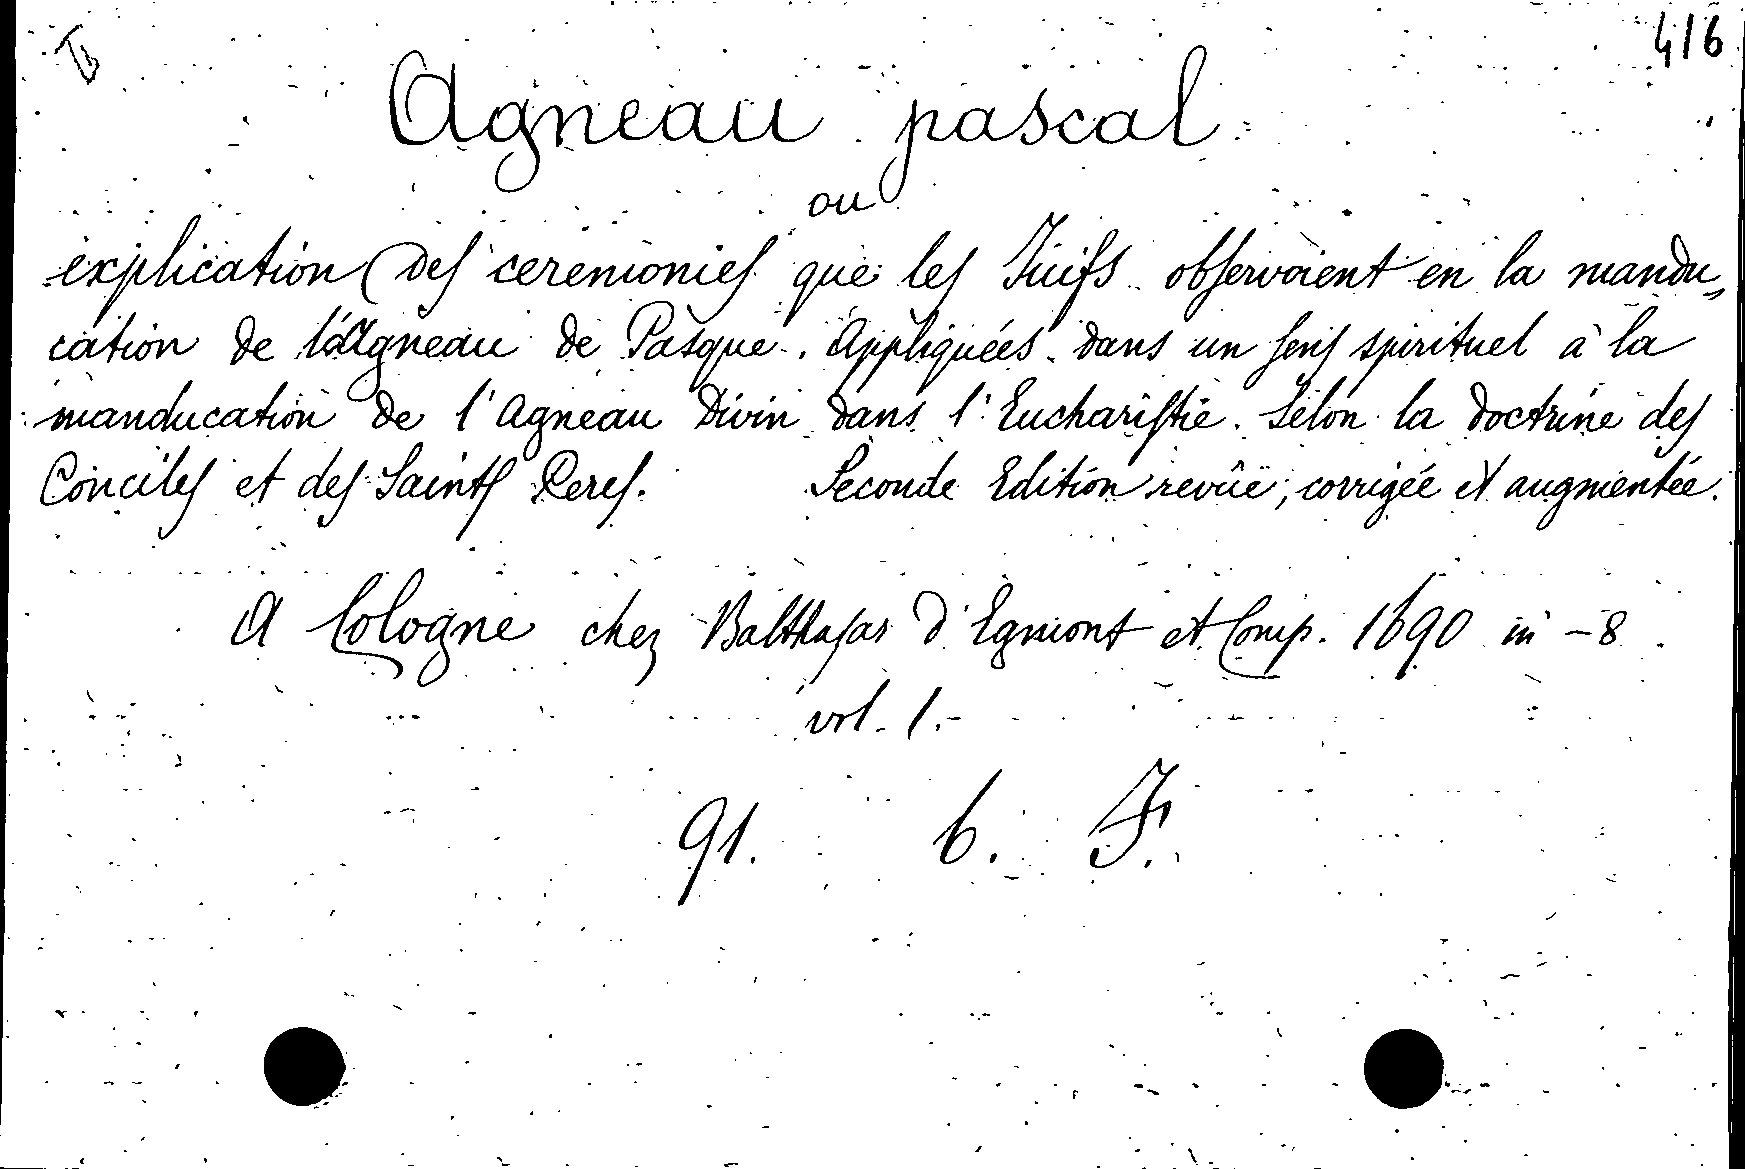 416
Agneau pascal
ou
explication des ceremonies que les Juifs observoient en la mandu„
cation de l'Agneau de Pasque. Appliquées dans un sens spirituel à la
manducation de l'Agneau Divin dans l'Eucharistie. Selon la doctrine des
Conciles et des Saints Peres. Seconde Edition revûë, corrigée et augmentée.
A Cologne chez Balthasar d'Egmont et Comp. 1690 in -8
vol. 1.
91. 6. F.